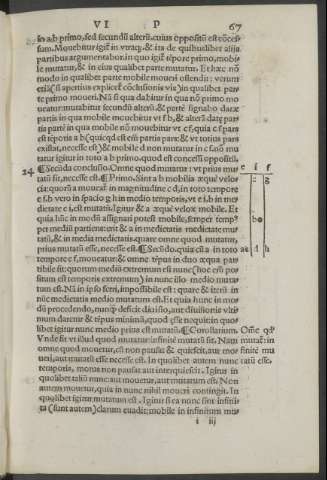 VI P 67
in a.b primo, sed secundū alterū. cuius oppositū est cōces-
sum. Mouebitur igit̄ in vtraq;. & ita de quibuslibet aliis
partibus argumentabor. in quo igit̄ tēpore primo, mobi
le mutatur, & in eius qualibet parte mutatur. Et hæc nō
modo in qualibet parte mobile moueri ostendit: verum
etiā
parte primo moueri. Nā si qua dabitur in qua nō primo mo
ueatur: mutabitur secundū alterū. & partē signabo datæ
partis in qua mobile mouebitur vt f b, & alterā datę par
tis partē in qua mobile nō mouebitur vt c f. quia c f pars
est tēporis a b
existat, necesse est) & mobile d non mutatur in c f. nō mu
tatur igitur in toto a b primo. quod est concessi oppositū.
24 ¶ Secūda conclusio. Omne quod mutatur: vt prius mu e i f
tatū sit, necesse est. ¶ Primo. Sint a b mobilia æquè velo- c g
cia: quorū a moueat̄ in magnitudine c d, in toto tempore
e f. b vero in spacio g h in medio temporis, vt e i. b in me-
dietate e i. est mutatū. Igitur & a æquè velox mobile. Et
quia hūc in modū assignari potest mobile, semper temp⁹ b
per mediū partiens: erit & a in medietatis medietate mu
tatū, & in media medietatis. quare omne quod mutatur,
prius mutatū esse, necesse est. ¶ Secūdo. quia cū a in toto a d h
tempore e f, moueatur: & omne tēpus in duo æqua par-
tibile sit: quorum mediū extremum est nunc
situm est temporis extremum) in nunc illo medio muta-
tum est. Nā in ipso ferri, impossibile est: quare & iterū in
nūc medietatis medio mutatum est. Et quia hunc in mo-
dū procedendo, nunq̄ deficit diuisio, aut diuisionē vlti-
mum dantur & tēpus minimū, quod esse nequit: in quo-
libet igitur nunc medio prius est mutatū. ¶ Corollarium. Omē qd̄
Vnde fit vt illud quod mutatur: infinitē mutatū sit. Nam mutat̄: in
omne quod mouetur, est non pausās & quiescēs, aut mo- finitē mu
ueri, aut mutatū esse necesse est. In quolibet autem nunc tatū esse.
temporis, motus non pausat aut interquiescit. Igitur in
quolibet talium nunc aut mouetur, aut mutatum est. Non
autem mouetur, quia in nunc nihil moueri contingit. In
quolibet igitur mutatum est. Igitur si ea nunc sunt infini-
ta (sunt autem) clarum euadit: mobile in infinitum mu-
i iij